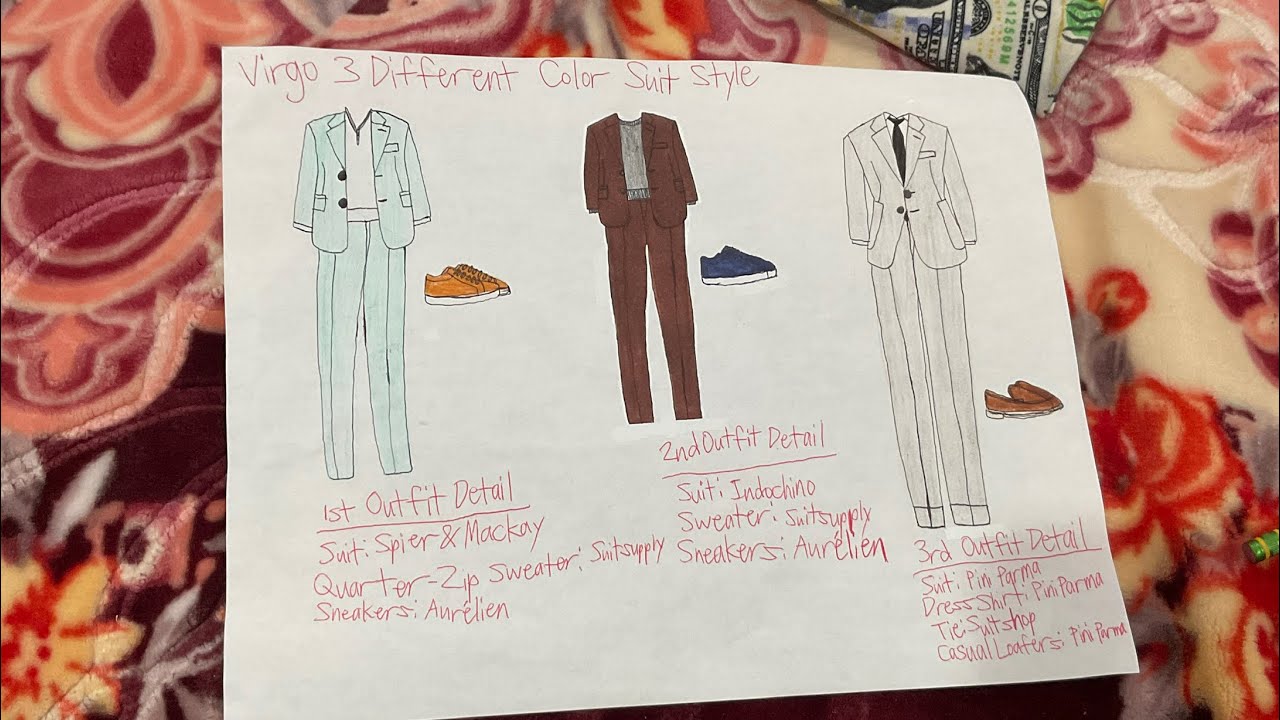 Virgo 3 Different Color Suit Style
1st Outfit Detail
Suit: Spier & Mackay
Quarter-Zip Sweater: Suitsupply
Sneakers: Aurélien
2nd Outfit Detail
Suit: Indochino
Sweater: Suitsupply
Sneakers: Aurélien
3rd Outfit Detail
Suit: Pini Parma
Dress Shirt: Pini Parma
Tie: Suitshop
Casual Loafers: Pini Parma